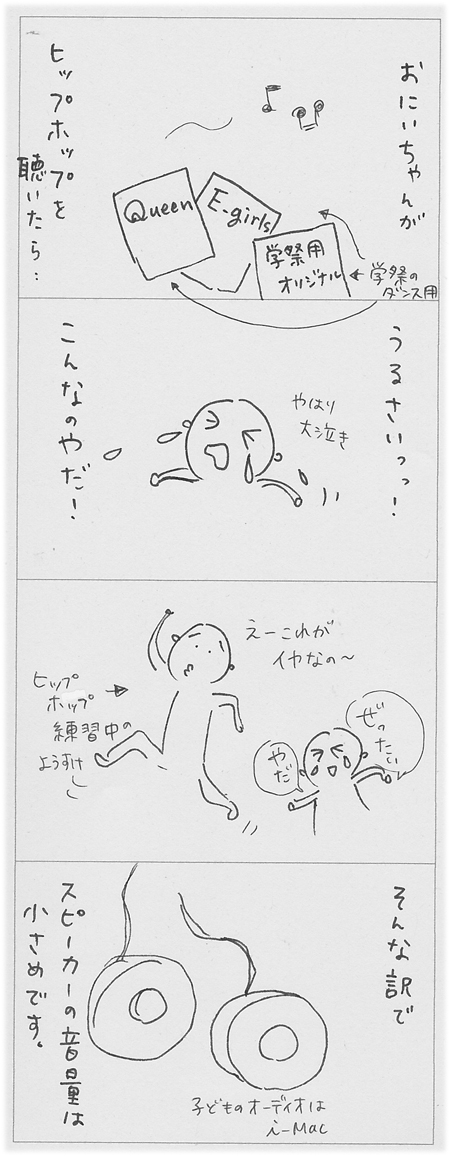 おにいちゃんが
ヒップホップを
聴いたら…
Queen
E-girls
学祭用
オリジナル
学祭の
ダンス用
うるさいっっ！
やはり
大泣き
こんなのやだ！
えーこれが
イヤなの〜
ヒップ
ホップ
練習中の
ようすけ
ぜったい
やだ
そんな訳で
スピーカーの音量は
小さめです。
子どものオーディオは
i-Mac